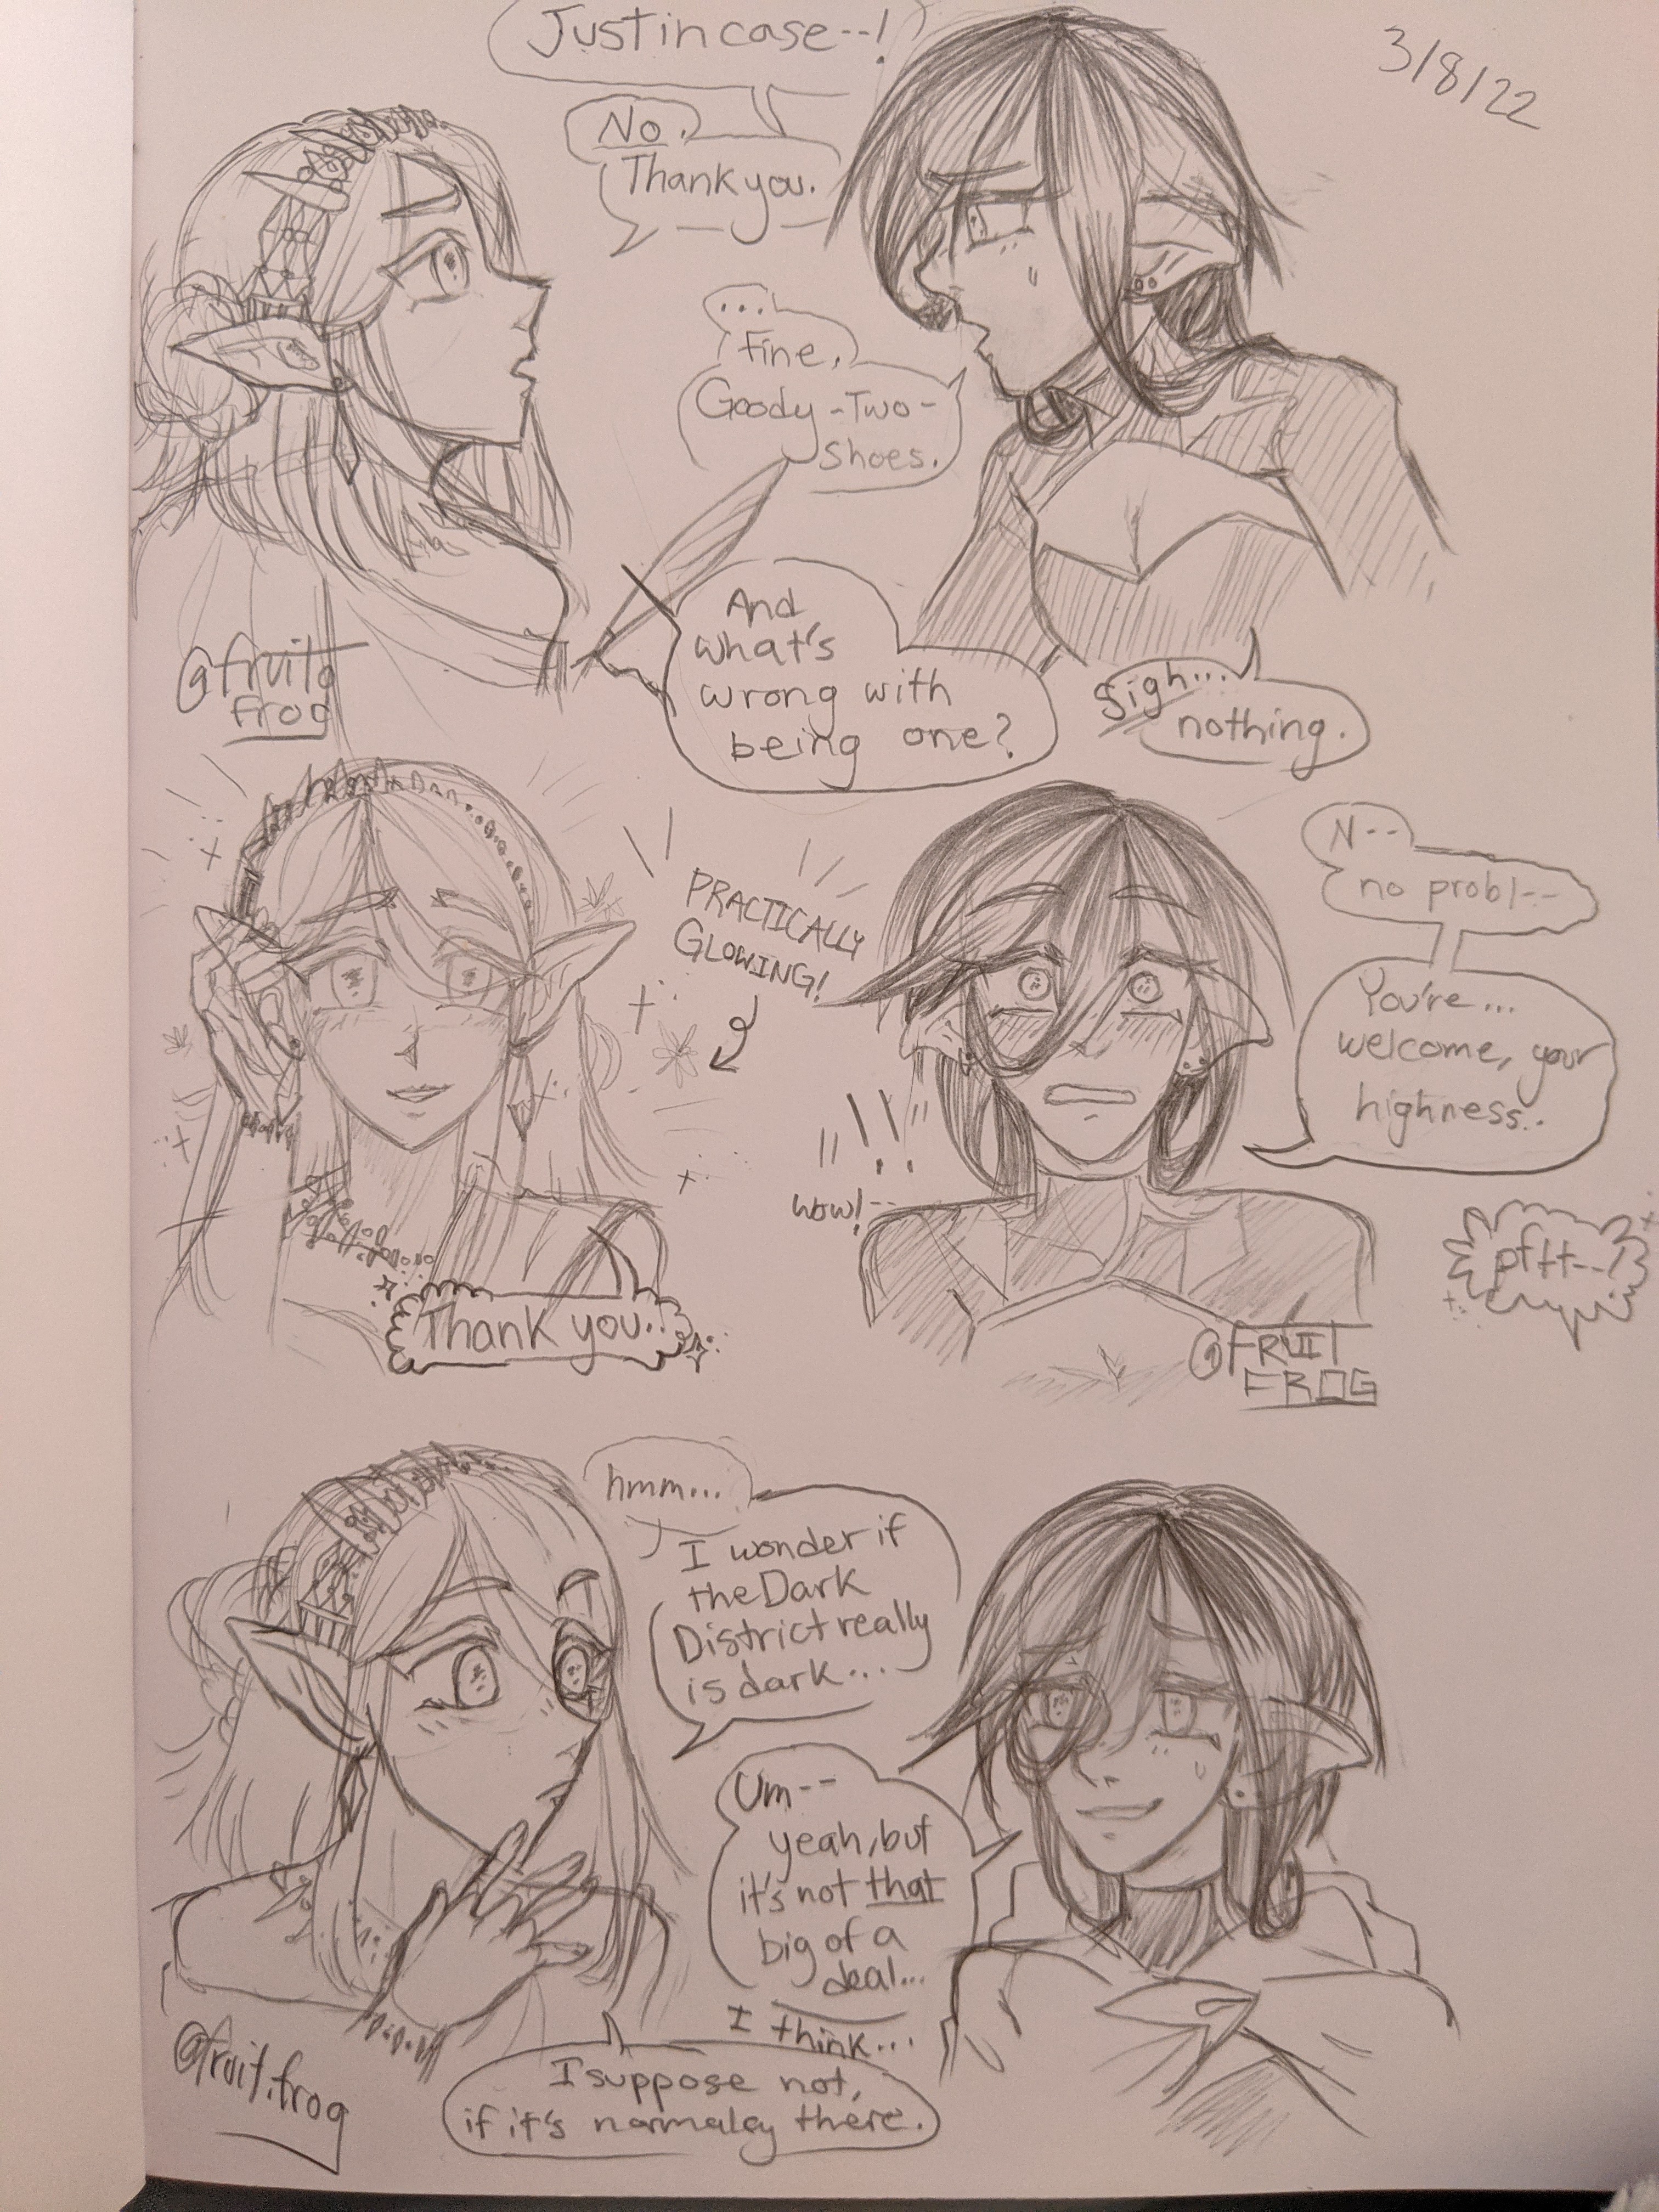 Just in case--!
3/8/22
No.
Thank you.
...
Fine,
Goody-Two-
Shoes.
And
what's
wrong with
being one?
Sigh...
nothing.
@fruit.
frog
PRACTICALLY
GLOWING!
N--
no probl--
You're...
welcome, your
highness..
!!
wow!--
pftt--!
Thank you..
@FRUIT
FROG
hmm...
I wonder if
the Dark
District really
is dark...
Um--
yeah, but
it's not that
big of a
deal...
I think...
I suppose not,
if it's normalcy there.
@fruit.frog